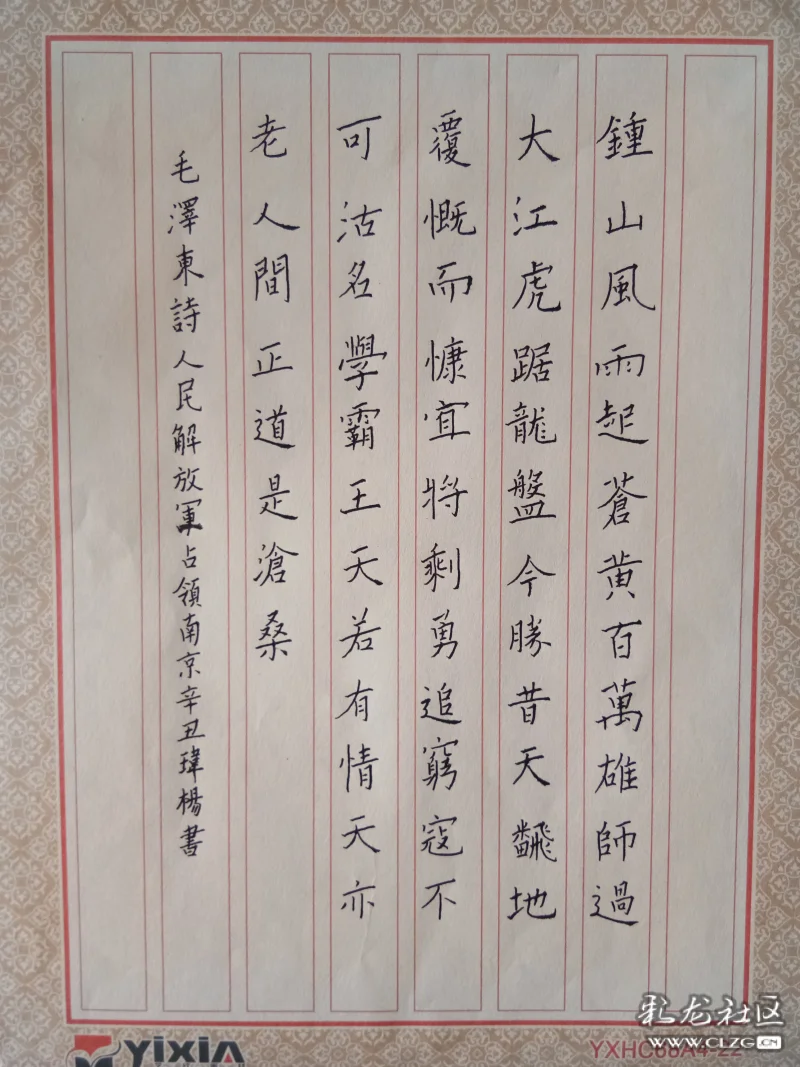 鍾山風雨起蒼黄百萬雄師過
大江虎踞龍盤今勝昔天飜地
覆慨而慷宜將剩勇追窮寇不
可沽名學霸王天若有情天亦
老人間正道是滄桑
毛澤東詩人民解放軍占領南京辛丑瑋楊書
YIXIN
YXHC68A4-22
彩龙社区
WWW.CLZG.CN